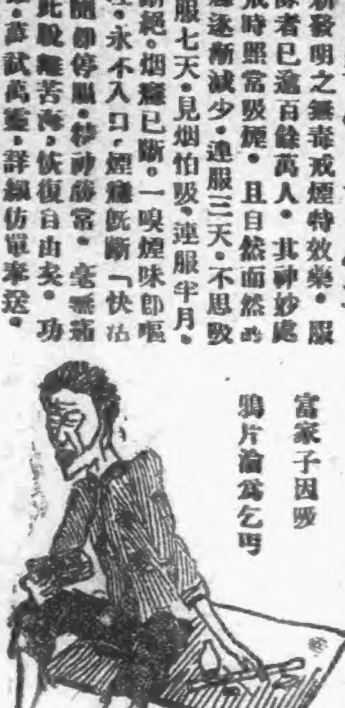 發明之無毒戒煙特效藥。服
者已逾百餘萬人。其神妙處
戒時照常吸煙。且自然而然的
逐漸減少。連服三天。不思吸
服七天。見烟怕吸。連服半月。
斷絕。烟癮已斷。一嗅煙味卽嘔
。永不入口。煙癮旣斷「快活
卽停服。精神勝常。毫無痛
此脫離苦海。恢復自由矣。功
。屢試萬靈。詳細仿單奉送。
富家子因吸
鴉片淪爲乞丐